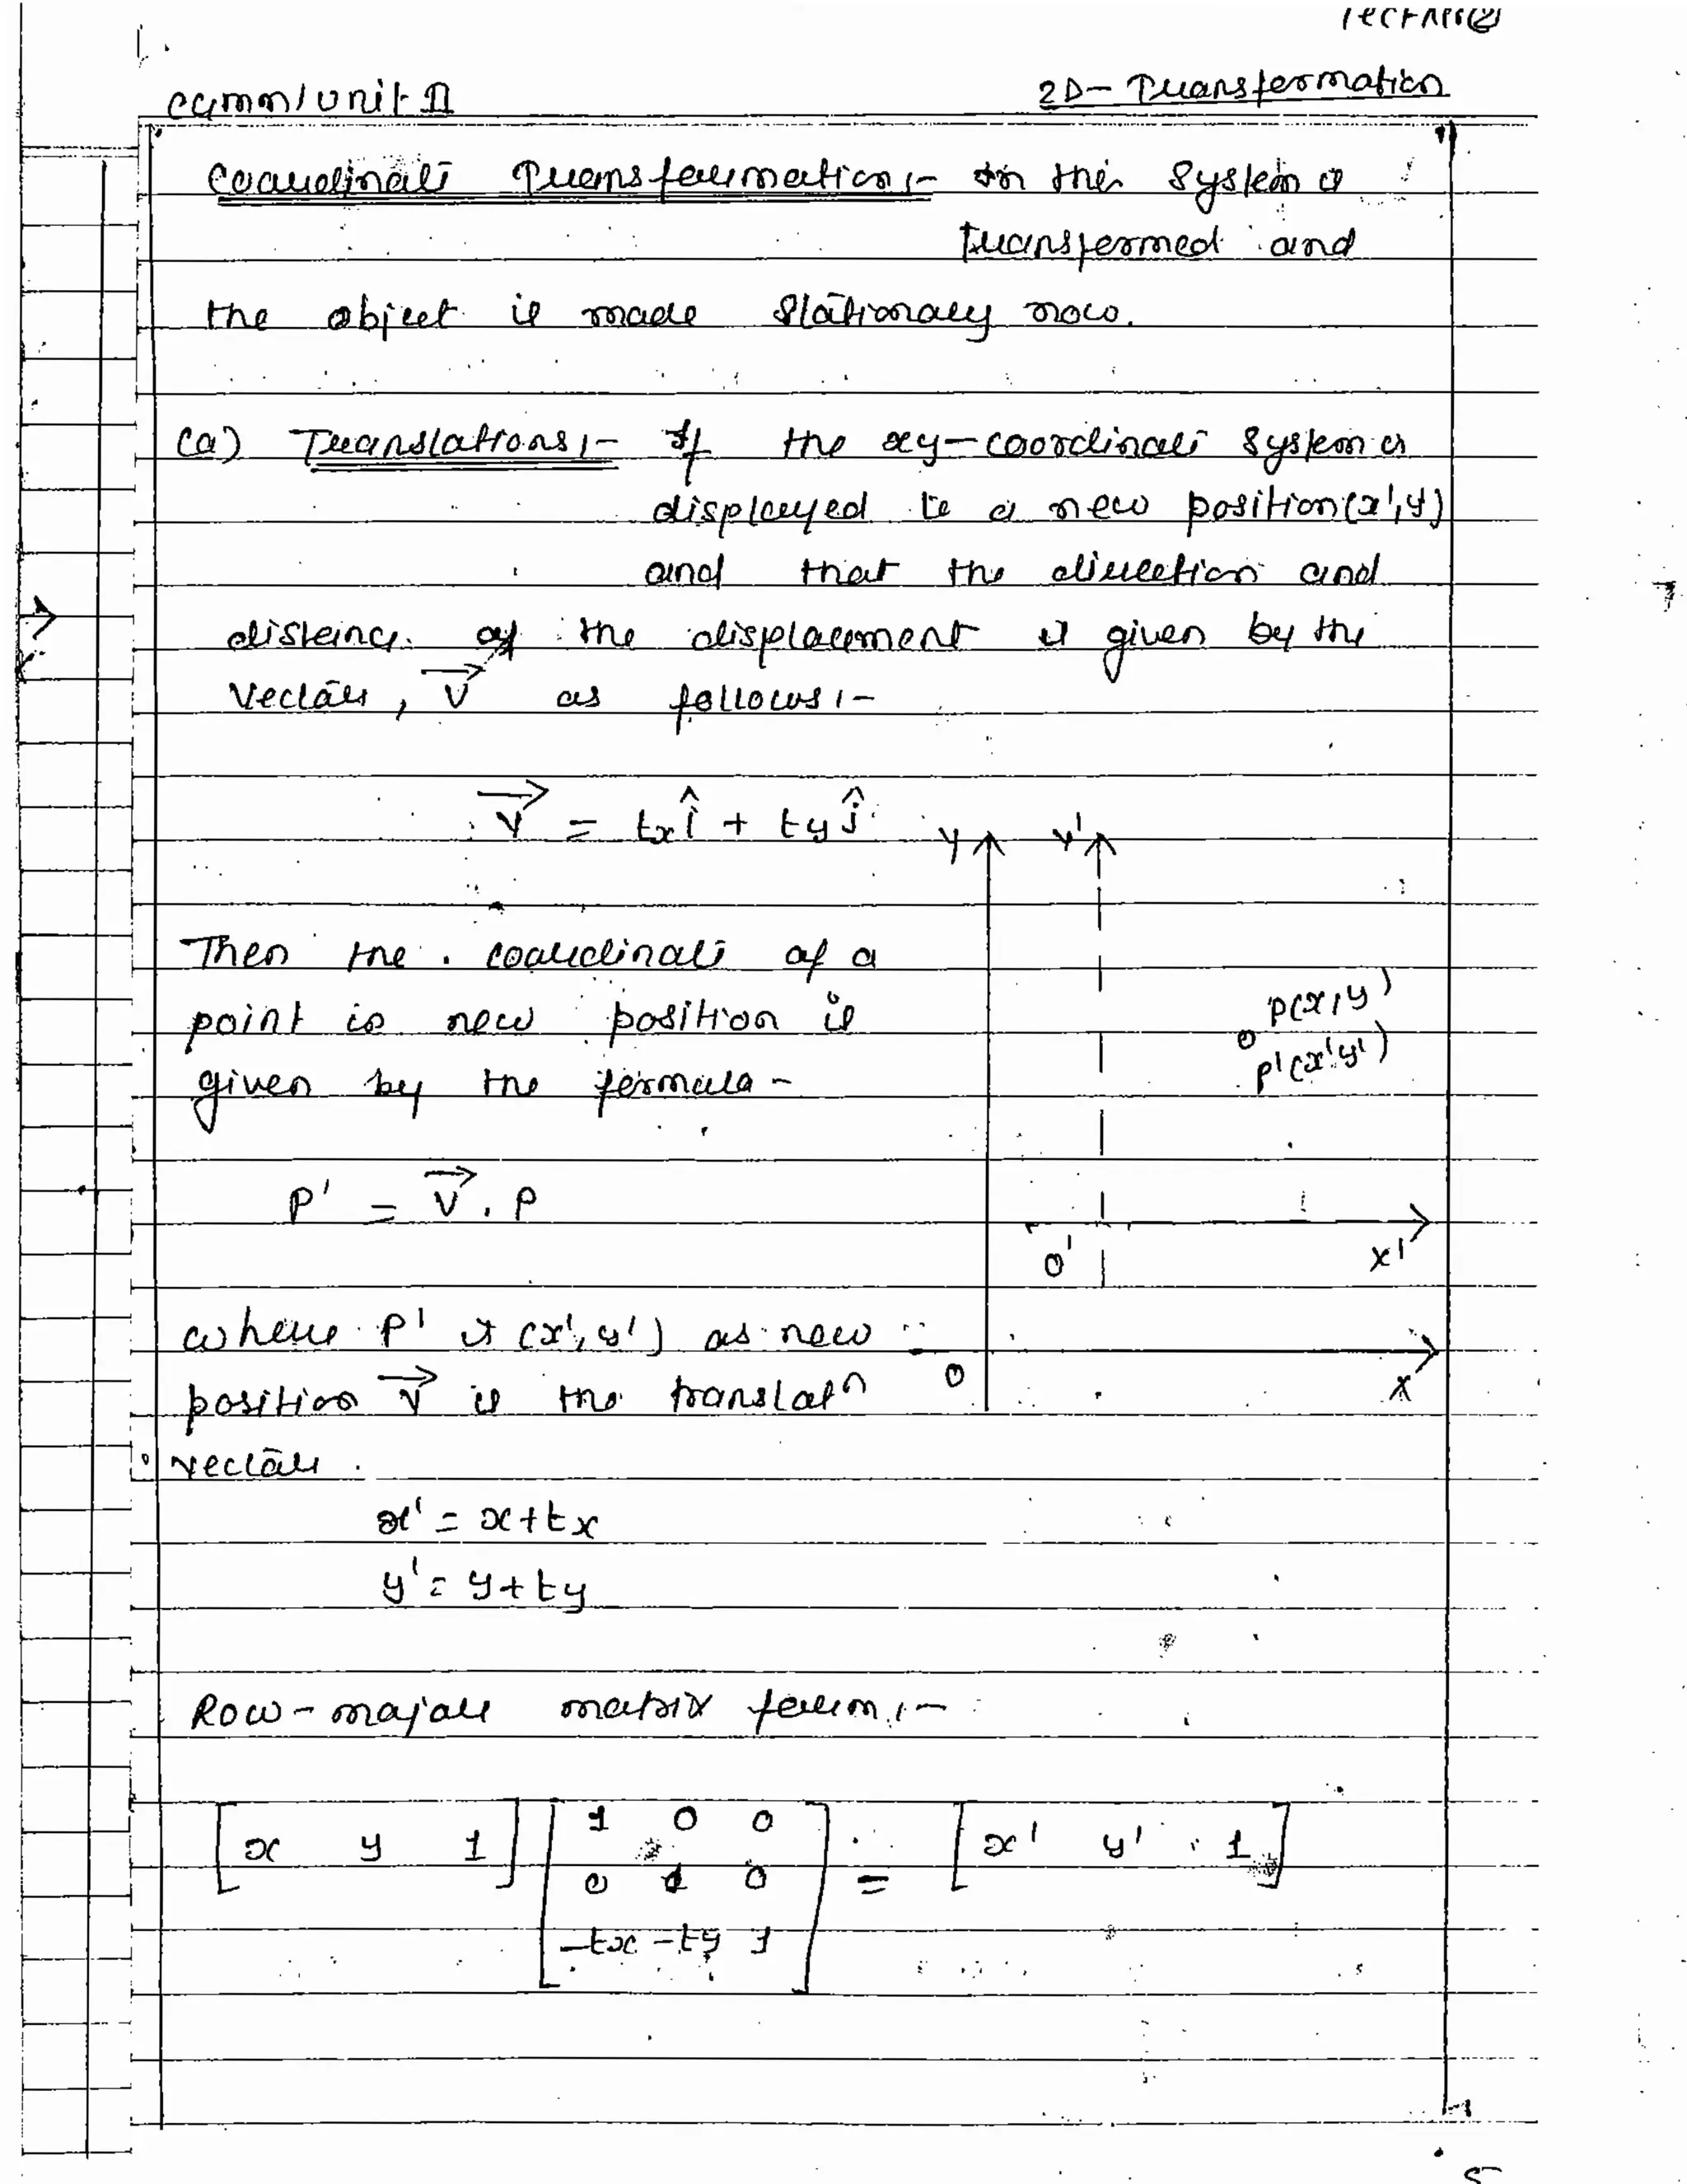 CGMM/Unit-II
2D-Transformation
Coordinate Transformation:- In this system is
transformed and
the object is made stationary now.
(a) Translations:- If the xy-coordinate system is
displayed to a new position(x',y')
and that the direction and
distance of the displacement is given by the
vector, V as follows:-
V = txî + tyĵ
Y Y'
Then the coordinate of a
point is new position is
given by the formula-
P(x,y)
P'(x'y')
P' = V . P
O' X'
where P' is (x',y') as new
position V is the translatn
O X
vector.
x' = x+tx
y' = y+ty
Row-major matrix form:-
[x y 1] [1 0 0
0 1 0 = [x' y' 1]
-tx -ty 1]